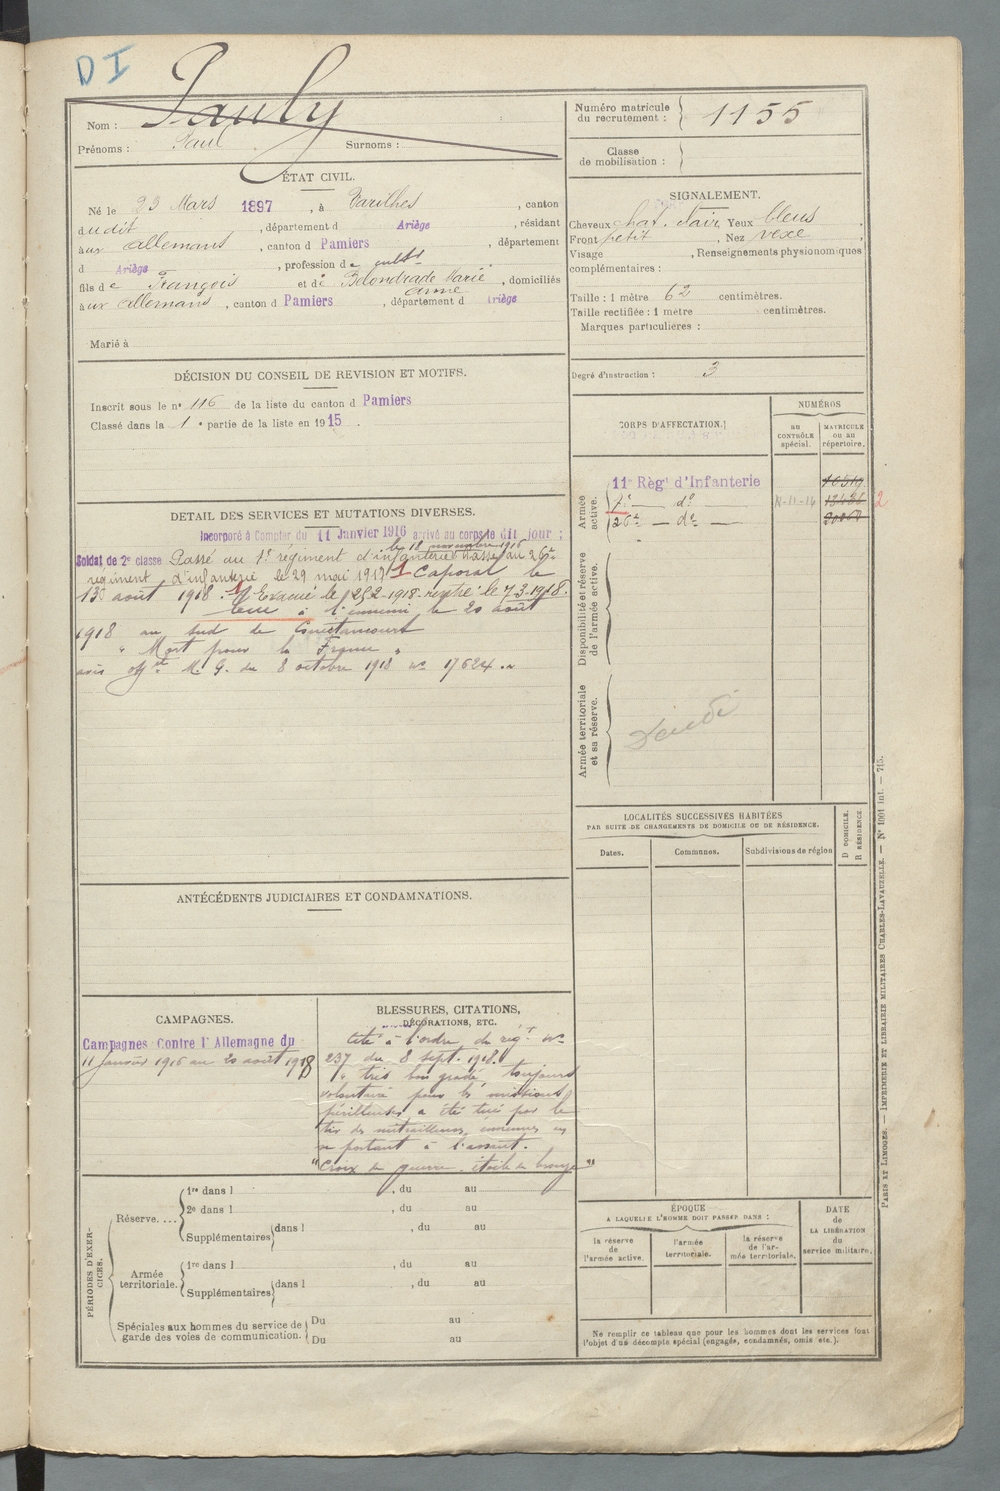 D I
Nom : Pauly
Prénoms : Paul Surnoms :
Numéro matricule
du recrutement : 1155
Classe
de mobilisation :
ÉTAT CIVIL.
Né le 23 Mars 1897, à Varilhes, canton
dudit, département d Ariège, résidant
aux allemans, canton d Pamiers, département
d Ariège, profession de cultr
fils de François et de Belondrade Marie
anne, domiciliés
aux allemans, canton d Pamiers, département d Ariège
Marié à
SIGNALEMENT.
Cheveux chat. clair, Yeux bleus
Front petit, Nez vexe,
Visage , Renseignements physionomiques
complémentaires :
Taille : 1 mètre 62 centimètres.
Taille rectifiée : 1 mètre centimètres.
Marques particulières :
Degré d'instruction : 3
DÉCISION DU CONSEIL DE REVISION ET MOTIFS.
Inscrit sous le n° 116 de la liste du canton d Pamiers
Classé dans la 1 e partie de la liste en 1915.
CORPS D'AFFECTATION.
NUMÉROS
au
CONTRÔLE
spécial.
MATRICULE
ou au
répertoire.
Armée
active.
11e Régt d'Infanterie
7e — do —
26e — do —
2
Disponibilité et réserve
de l'armée active.
Armée territoriale
et sa réserve.
DETAIL DES SERVICES ET MUTATIONS DIVERSES.
Incorporé à Compter du 11 Janvier 1916 arrivé au corps le dit jour ;
le 18 novembre 1916
Soldat de 2e classe Passé au 7e régiment d'infanterie Passé au 26e
régiment d'infanterie le 29 mai 1917 1 Caporal le
13 août 1918. 1 Evacué le 12-2-1918. rentré le 7-3-1918.
tué à l'ennemi le 20 août
1918 au sud de
" Mort pour la France "
avis M. G. du 8 octobre 1918 no 17624
LOCALITÉS SUCCESSIVES HABITÉES
PAR SUITE DE CHANGEMENTS DE DOMICILE OU DE RÉSIDENCE.
Dates.
Communes.
Subdivisions de région
D DOMICILE.
R RÉSIDENCE
ANTÉCÉDENTS JUDICIAIRES ET CONDAMNATIONS.
CAMPAGNES.
Campagnes Contre l'Allemagne du
11 Janvier 1916 au 20 août 1918
BLESSURES, CITATIONS,
DÉCORATIONS, ETC.
Cité à l'ordre du régt no
237 du 8 sept. 1918.
" très bon gradé, toujours
volontaire pour les missions
périlleuses a été tué par le
tir des mitrailleuses ennemies en
se portant à l'assaut.
"Croix de guerre, étoile de bronze"
PÉRIODES D'EXERCICES.
Réserve....
1re dans l , du au
2e dans l , du au
Supplémentaires dans l , du au
Armée
territoriale.
1re dans l , du au
Supplémentaires dans l , du au
Spéciales aux hommes du service de
garde des voies de communication.
Du au
Du au
ÉPOQUE
A LAQUELLE L'HOMME DOIT PASSER DANS :
la réserve
de
l'armée active.
l'armée
territoriale.
la réserve
de l'ar-
mée territoriale.
DATE
de
LA LIBÉRATION
du
service militaire.
Ne remplir ce tableau que pour les hommes dont les services font
l'objet d'un décompte spécial (engagés, condamnés, omis etc.).
PARIS ET LIMOGES. — IMPRIMERIE ET LIBRAIRIE MILITAIRES CHARLES-LAVAUZELLE. — N° 1001 int. — 715.